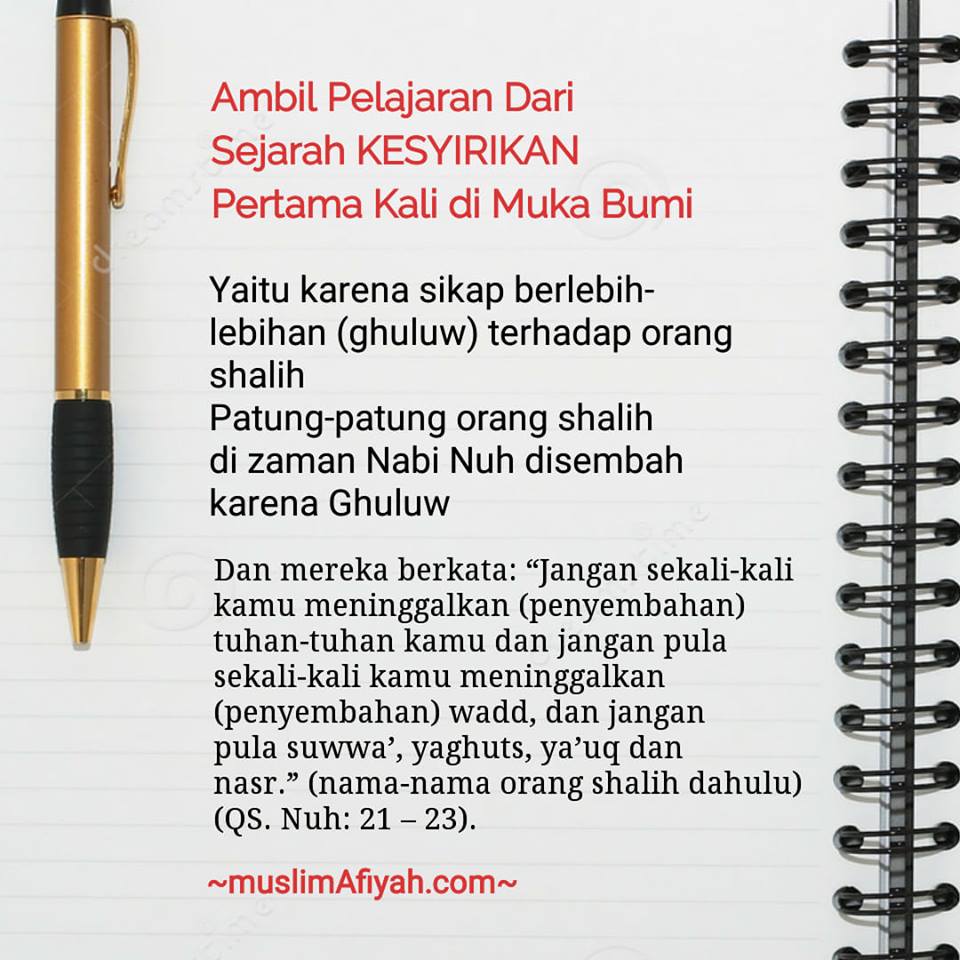 Ambil Pelajaran Dari
Sejarah KESYIRIKAN
Pertama Kali di Muka Bumi
Yaitu karena sikap berlebih-
lebihan (ghuluw) terhadap orang
shalih
Patung-patung orang shalih
di zaman Nabi Nuh disembah
karena Ghuluw
Dan mereka berkata: “Jangan sekali-kali
kamu meninggalkan (penyembahan)
tuhan-tuhan kamu dan jangan pula
sekali-kali kamu meninggalkan
(penyembahan) wadd, dan jangan
pula suwwa’, yaghuts, ya’uq dan
nasr.” (nama-nama orang shalih dahulu)
(QS. Nuh: 21 – 23).
~muslimAfiyah.com~